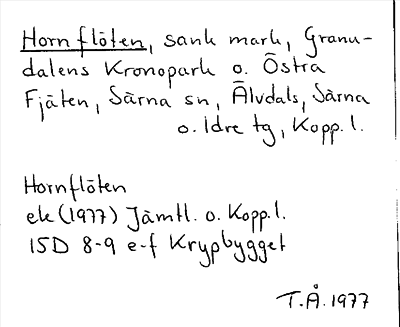 Hornflöten, sank mark, Granu-
dalens Kronopark o. Östra
Fjäten, Särna sn, Älvdals, Särna
o. Idre tg, Kopp. l.
Hornflöten
ek (1977) Jämtl. o. Kopp. l.
15D 8-9 e-f Krypbygget
T.Å. 1977